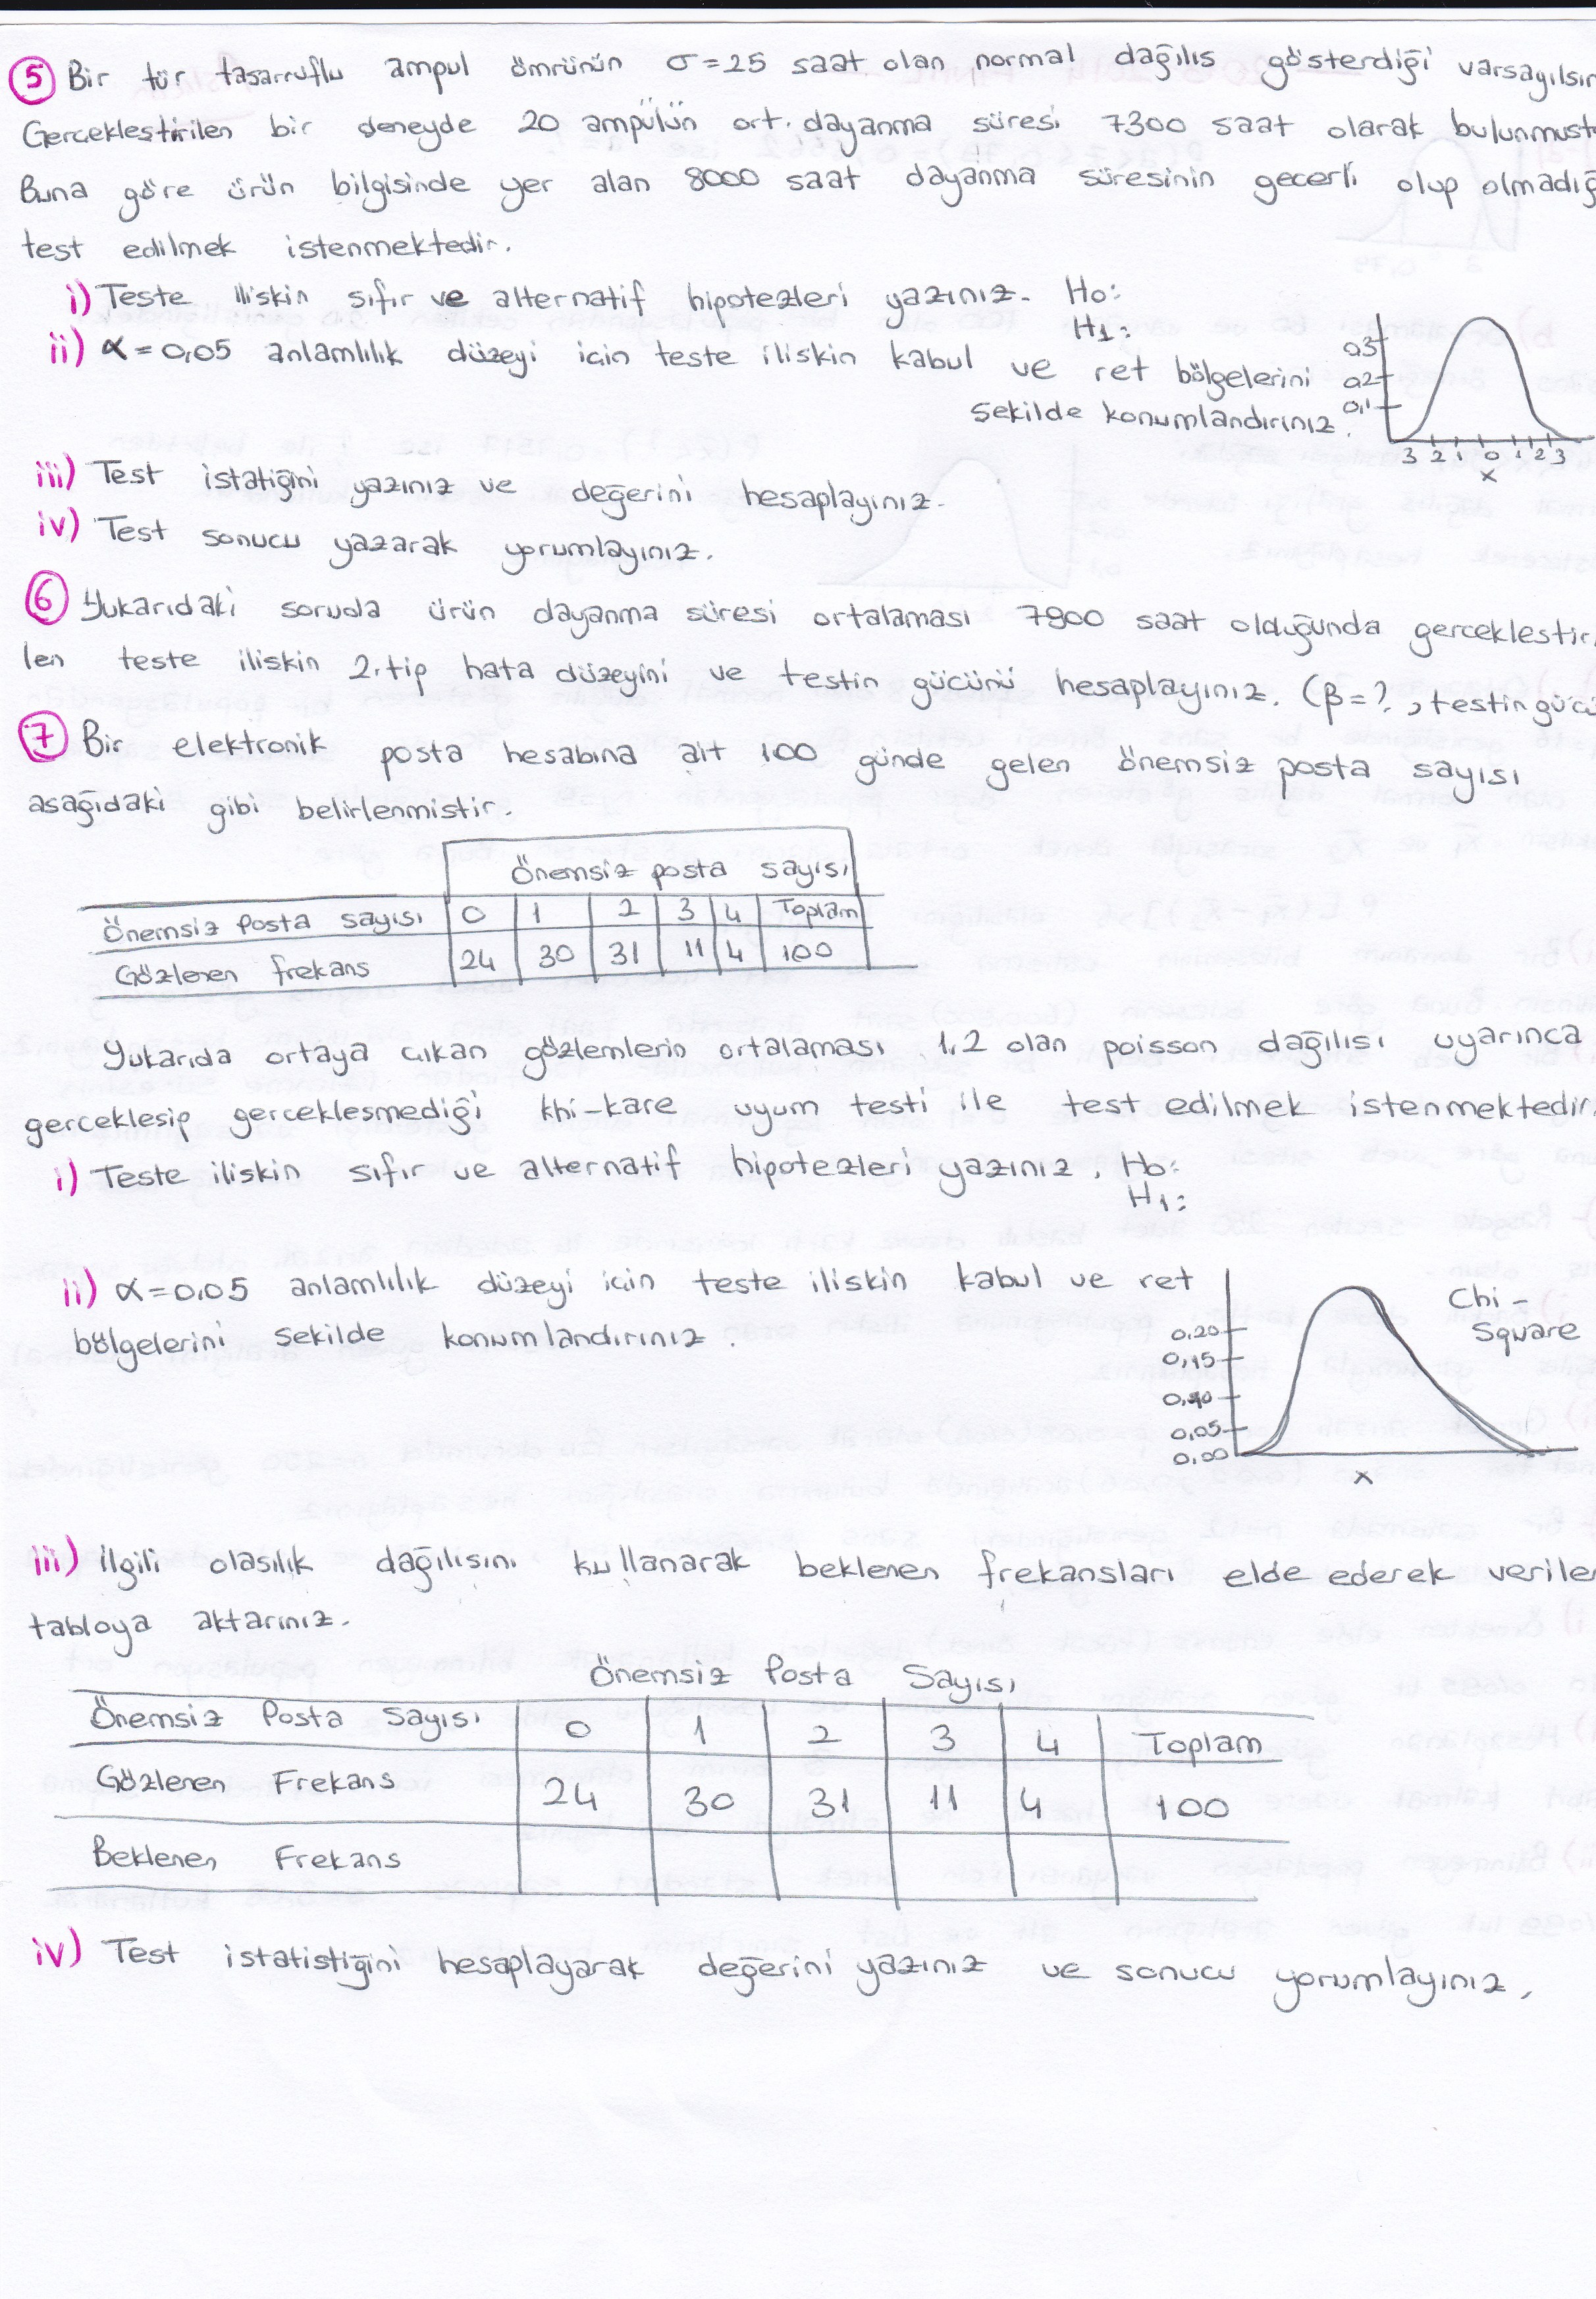 5 Bir tür tasarruflu ampul ömrünün σ=25 saat olan normal dağılış gösterdiği varsayılsın
Gerceklestirilen bir deneyde 20 ampülün ort. dayanma süresi 7300 saat olarak bulunmust
Buna göre ürün bilgisinde yer alan 8000 saat dayanma süresinin gecerli olup olmadığ
test edilmek istenmektedir.
i) Teste iliskin sıfır ve alternatif hipotezleri yazınız. H0:
H1:
ii) α=0,05 anlamlılık düzeyi icin teste iliskin kabul ve ret bölgelerini
sekilde konumlandırınız.
0,3
0,2
0,1
3 2 1 0 1 2 3
x
iii) Test istatiğini yazınız ve değerini hesaplayınız.
iv) Test sonucu yazarak yorumlayınız.
6 Yukarıdaki soruda ürün dayanma süresi ortalaması 7900 saat olduğunda gerceklestir
len teste iliskin 2.tip hata düzeyini ve testin gücünü hesaplayınız. (β=?, testin gücü
7 Bir elektronik posta hesabına ait 100 günde gelen önemsiz posta sayısı
asağıdaki gibi belirlenmistir.
Önemsiz posta sayısı
Önemsiz Posta sayısı 0 1 2 3 4 Toplam
Gözlenen frekans 24 30 31 11 4 100
Yukarıda ortaya cıkan gözlemlerin ortalaması 1,2 olan poisson dağılısı uyarınca
gerceklesip gerceklesmediği khi-kare uyum testi ile test edilmek istenmektedir.
i) Teste iliskin sıfır ve alternatif hipotezleri yazınız. H0:
H1:
ii) α=0,05 anlamlılık düzeyi icin teste iliskin kabul ve ret
bölgelerini sekilde konumlandırınız.
Chi-
Square
0,20
0,15
0,10
0,05
0,00
x
iii) ilgili olasılık dağılısını kullanarak beklenen frekansları elde ederek verilen
tabloya aktarınız.
Önemsiz Posta Sayısı
Önemsiz Posta Sayısı 0 1 2 3 4 Toplam
Gözlenen Frekans 24 30 31 11 4 100
Beklenen Frekans
iv) Test istatistiğini hesaplayarak değerini yazınız ve sonucu yorumlayınız.